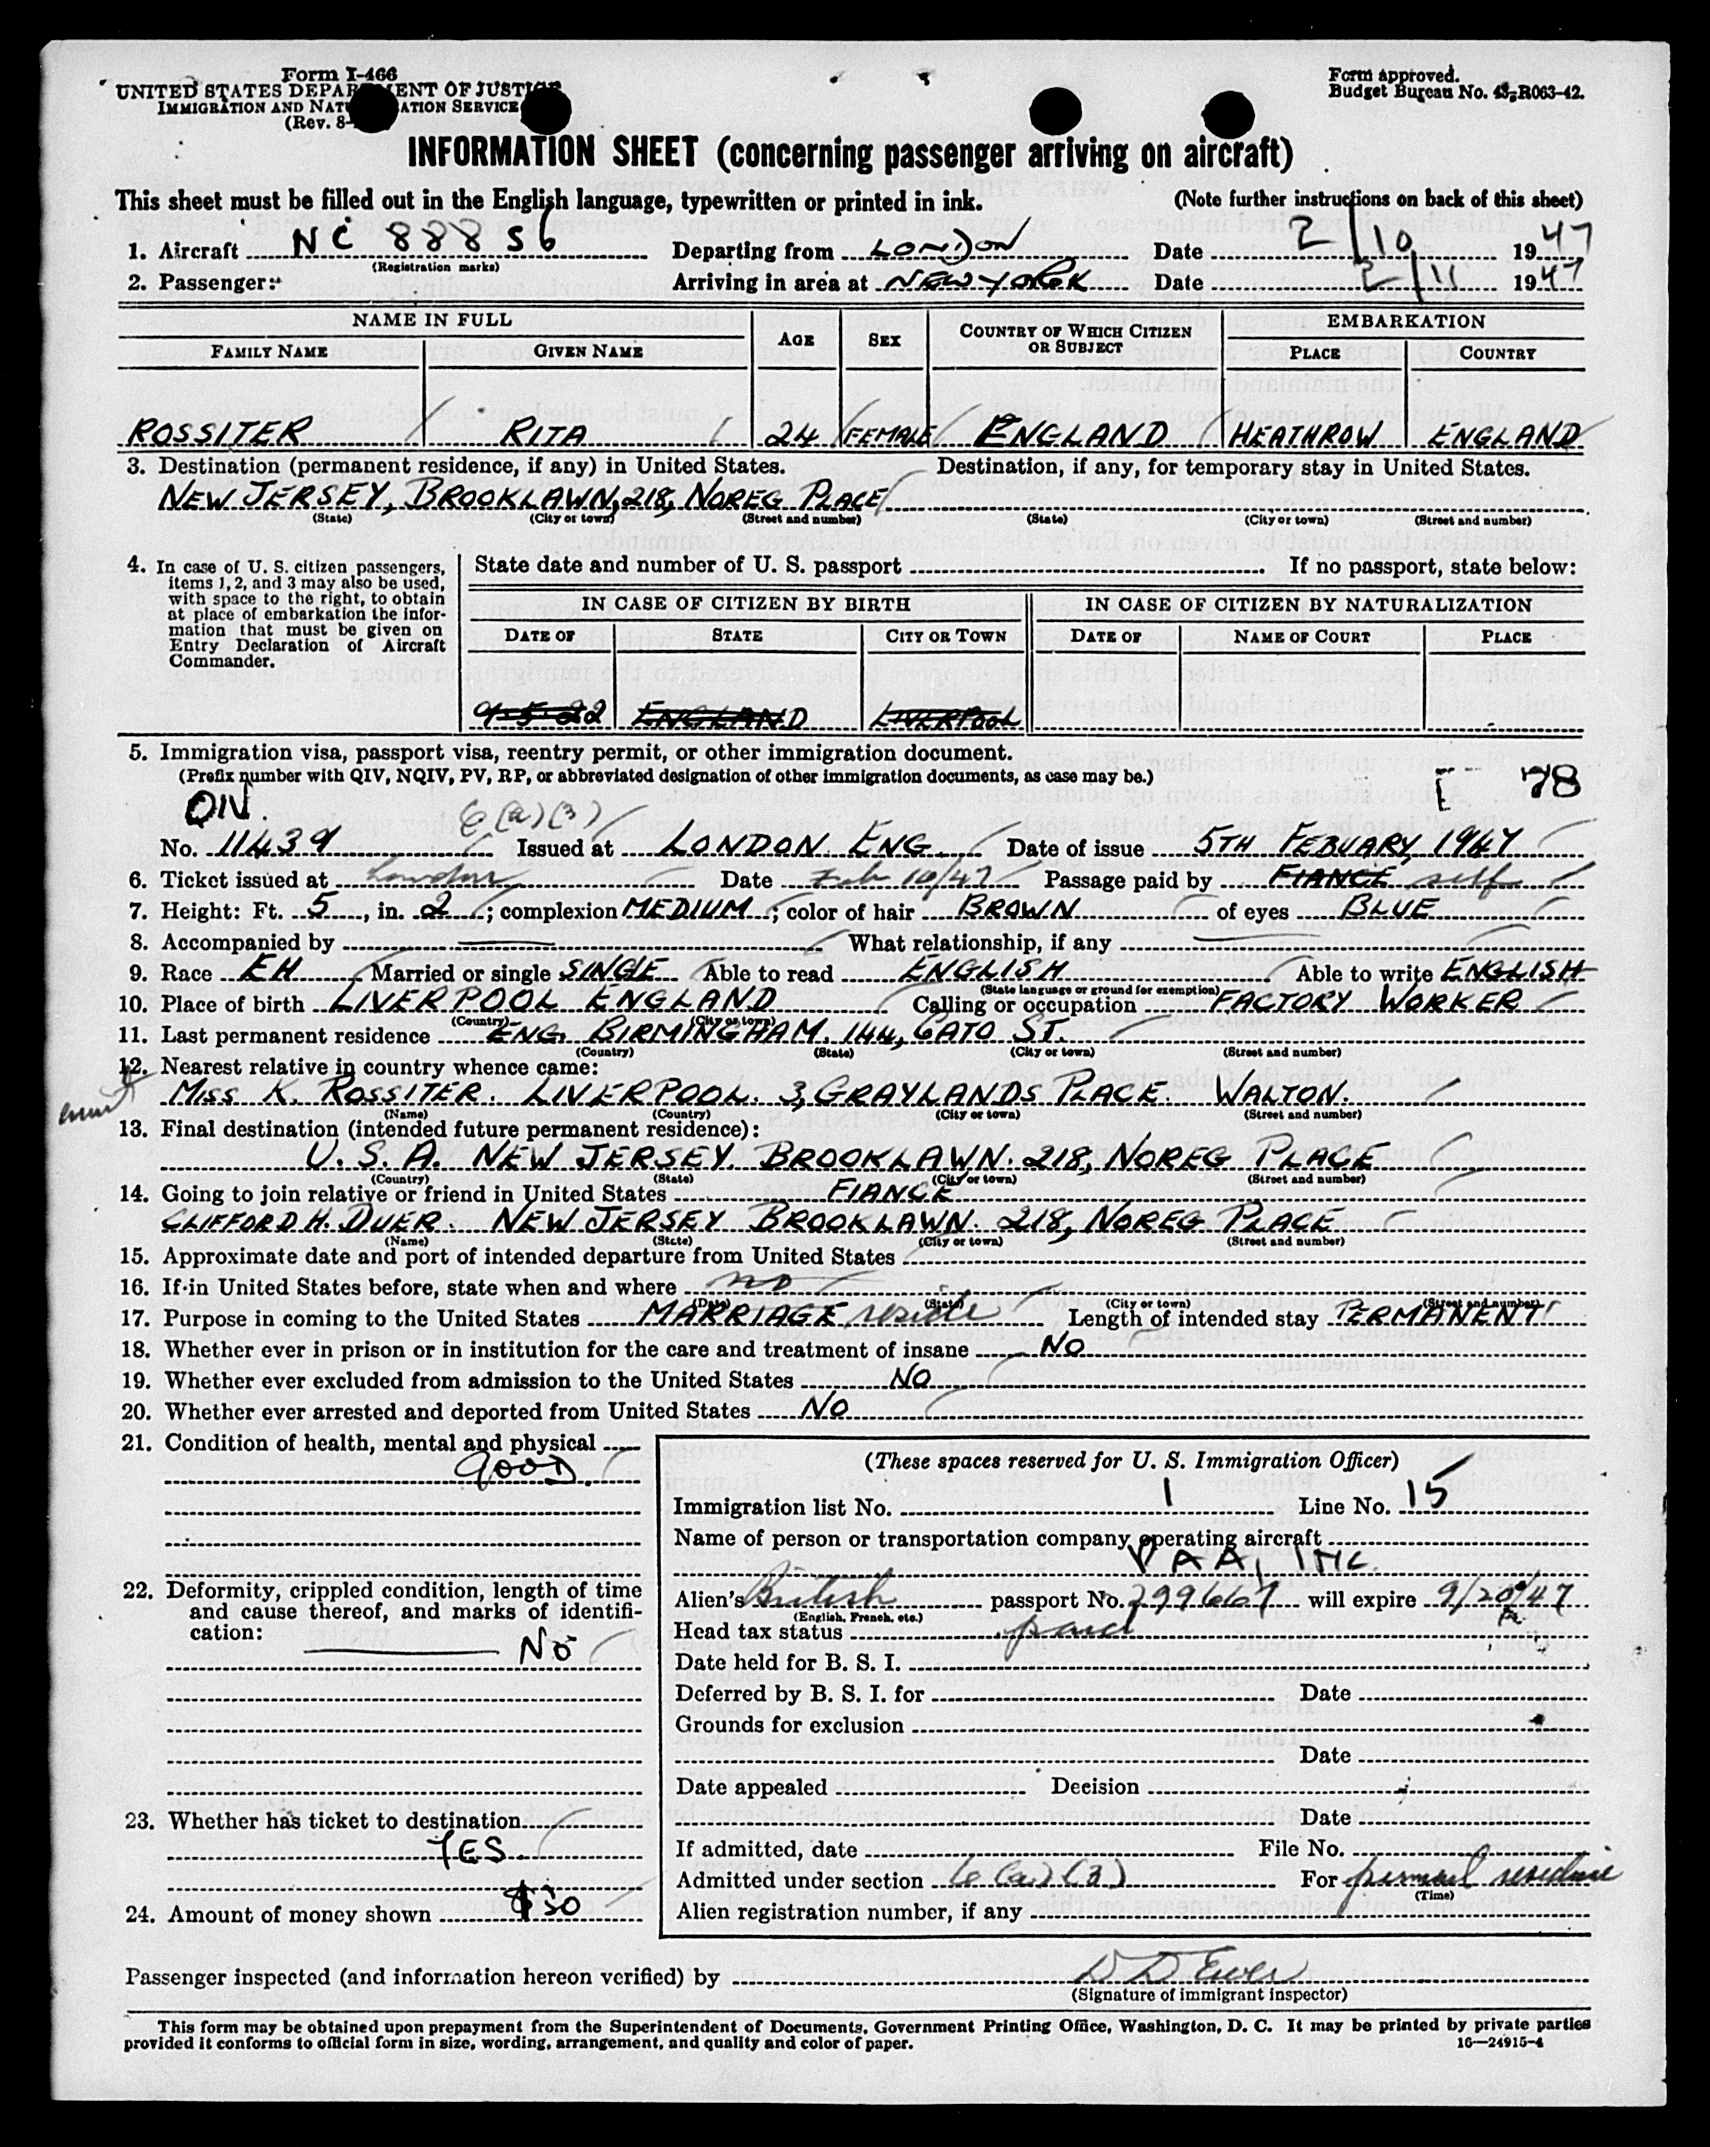 Form I-466
UNITED STATES DEPARTMENT OF JUSTICE
IMMIGRATION AND NATURALIZATION SERVICE
(Rev. 8-
Form approved.
Budget Bureau No. 43-R063-42.
INFORMATION SHEET (concerning passenger arriving on aircraft)
This sheet must be filled out in the English language, typewritten or printed in ink. (Note further instructions on back of this sheet)
1. Aircraft NC 88856 Departing from LONDON Date 2/10 1947
(Registration marks)
2. Passenger: Arriving in area at NEW YORK Date 2/11 1947
NAME IN FULL AGE SEX COUNTRY OF WHICH CITIZEN OR SUBJECT EMBARKATION
FAMILY NAME GIVEN NAME PLACE COUNTRY
ROSSITER RITA 24 FEMALE ENGLAND HEATHROW ENGLAND
3. Destination (permanent residence, if any) in United States. Destination, if any, for temporary stay in United States.
NEW JERSEY, BROOKLAWN, 218, NOREG PLACE
(State) (City or town) (Street and number) (State) (City or town) (Street and number)
4. In case of U. S. citizen passengers, items 1, 2, and 3 may also be used, with space to the right, to obtain at place of embarkation the information that must be given on Entry Declaration of Aircraft Commander.
State date and number of U. S. passport If no passport, state below:
IN CASE OF CITIZEN BY BIRTH IN CASE OF CITIZEN BY NATURALIZATION
DATE OF STATE CITY OR TOWN DATE OF NAME OF COURT PLACE
9-5-22 ENGLAND LIVERPOOL
5. Immigration visa, passport visa, reentry permit, or other immigration document.
(Prefix number with QIV, NQIV, PV, RP, or abbreviated designation of other immigration documents, as case may be.)
[ 78
QIV. 6(a)(3)
No. 11439 Issued at LONDON ENG. Date of issue 5TH FEBUARY, 1947
6. Ticket issued at London Date Feb 10/47 Passage paid by FIANCE self
7. Height: Ft. 5, in. 2; complexion MEDIUM; color of hair BROWN of eyes BLUE
8. Accompanied by What relationship, if any
9. Race EH Married or single SINGLE Able to read ENGLISH Able to write ENGLISH
(State language or ground for exemption)
10. Place of birth LIVERPOOL ENGLAND Calling or occupation FACTORY WORKER
(Country) (City or town)
11. Last permanent residence ENG. BIRMINGHAM. 144, CATO ST.
(Country) (State) (City or town) (Street and number)
12. Nearest relative in country whence came:
aunt MISS K. ROSSITER. LIVERPOOL. 3, GRAYLANDS PLACE. WALTON.
(Name) (Country) (City or town) (Street and number)
13. Final destination (intended future permanent residence):
U. S. A. NEW JERSEY. BROOKLAWN. 218, NOREG PLACE
(Country) (State) (City or town) (Street and number)
14. Going to join relative or friend in United States FIANCE
CLIFFORD H. DUER. NEW JERSEY BROOKLAWN. 218, NOREG PLACE
(Name) (State) (City or town) (Street and number)
15. Approximate date and port of intended departure from United States
16. If in United States before, state when and where no
(Date) (State) (City or town) (Street and number)
17. Purpose in coming to the United States MARRIAGE reside Length of intended stay PERMANENT
18. Whether ever in prison or in institution for the care and treatment of insane NO
19. Whether ever excluded from admission to the United States NO
20. Whether ever arrested and deported from United States NO
21. Condition of health, mental and physical
GOOD.
22. Deformity, crippled condition, length of time and cause thereof, and marks of identification:
NO
23. Whether has ticket to destination
YES.
24. Amount of money shown $30
(These spaces reserved for U. S. Immigration Officer)
Immigration list No. 1 Line No. 15
Name of person or transportation company operating aircraft
PAA, INC.
Alien's British passport No. 299667 will expire 9/20/47
(English, French, etc.)
Head tax status paid
Date held for B. S. I.
Deferred by B. S. I. for Date
Grounds for exclusion
Date
Date appealed Decision
Date
If admitted, date File No.
Admitted under section 6(a)(3) For permanl residence
(Time)
Alien registration number, if any
Passenger inspected (and information hereon verified) by D D Ewer
(Signature of immigrant inspector)
This form may be obtained upon prepayment from the Superintendent of Documents, Government Printing Office, Washington, D. C. It may be printed by private parties
provided it conforms to official form in size, wording, arrangement, and quality and color of paper. 16—24915-4